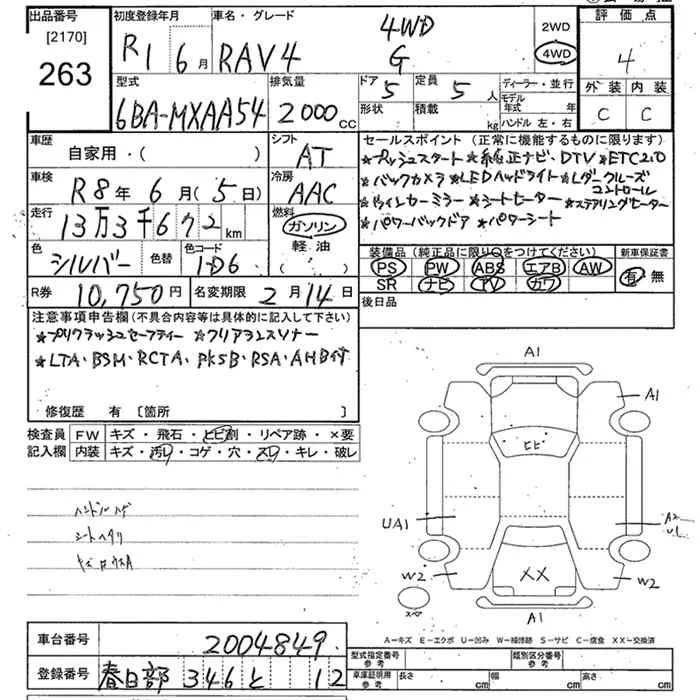 出品番号
[2170]
263
初度登録年月
R1 6月
車名・グレード
RAV4 4WD G
2WD
4WD
評価点
4
外装 内装
C C
型式
6BA-MXAA54
排気量
2000cc
ドア 5
定員 5人
形状
積載 kg
ディーラー・並行
モデル年式 年式
ハンドル 左・右
車歴
自家用・( )
シフト
AT
セールスポイント (正常に機能するものに限ります)
★プッシュスタート ★純正ナビ・DTV ★ETC2.0
★バックカメラ ★LEDヘッドライト ★レーダークルーズコントロール
★ドライレコーミラー ★シートヒーター ★ステアリングヒーター
★パワーバックドア ★パワーシート
車検
R8年 6月(5日)
冷房
AAC
走行
13万3千672km
燃料
ガソリン
軽油
( )
色
シルバー
色替
色コード
1D6
装備品 (純正品に限り○をつけてください)
PS PW ABS エアB AW
SR ナビ TV カワ
新車保証書
有・無
R券
10,750円
名変期限
2月14日
後日品
注意事項申告欄(不具合内容等は具体的に記入して下さい)
★プリクラッシュセーフティー ★クリアランスソナー
★LTA・BSM・RCTA・PKSB・RSA・AHB付
修復歴 有 [箇所 ]
検査員記入欄
FW キズ・飛石・ヒビ割・リペア跡・×要
内装 キズ・汚れ・コゲ・穴・スレ・キレ・破レ
ハンドルハゲ
シートヘタリ
A1
A1
ヒビ
UA1
A2
XX
W2
W2
A1
スペア
A-キズ E-エクボ U-凹み W-補修跡 S-サビ C-腐食 XX-交換済
車台番号
2004849
登録番号
春日部 346 と 12
型式指定番号
参考
類別区分番号
参考
車庫証明用
参考
長さ cm
幅 cm
高さ cm